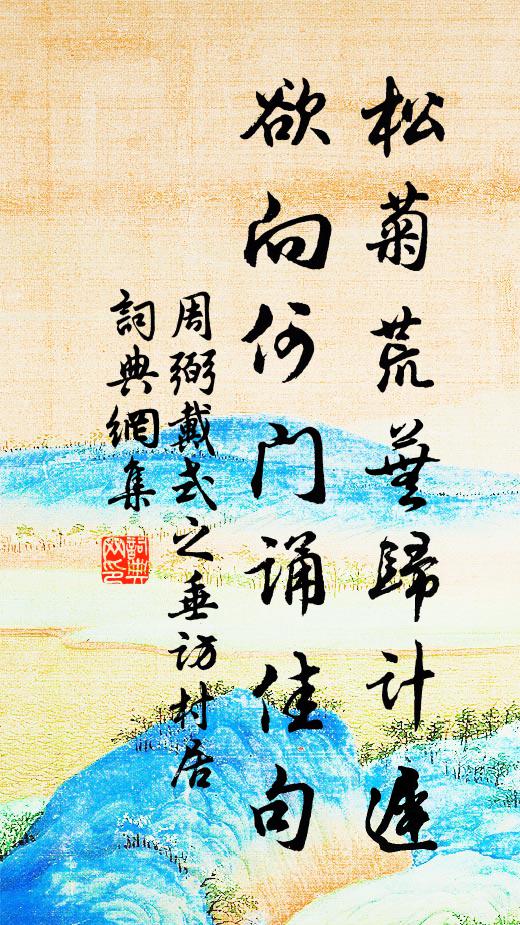 松菊荒蕪歸計遲
欲向何门诵佳句
周弼戴式之垂访村居
詞典網集
詞典網印